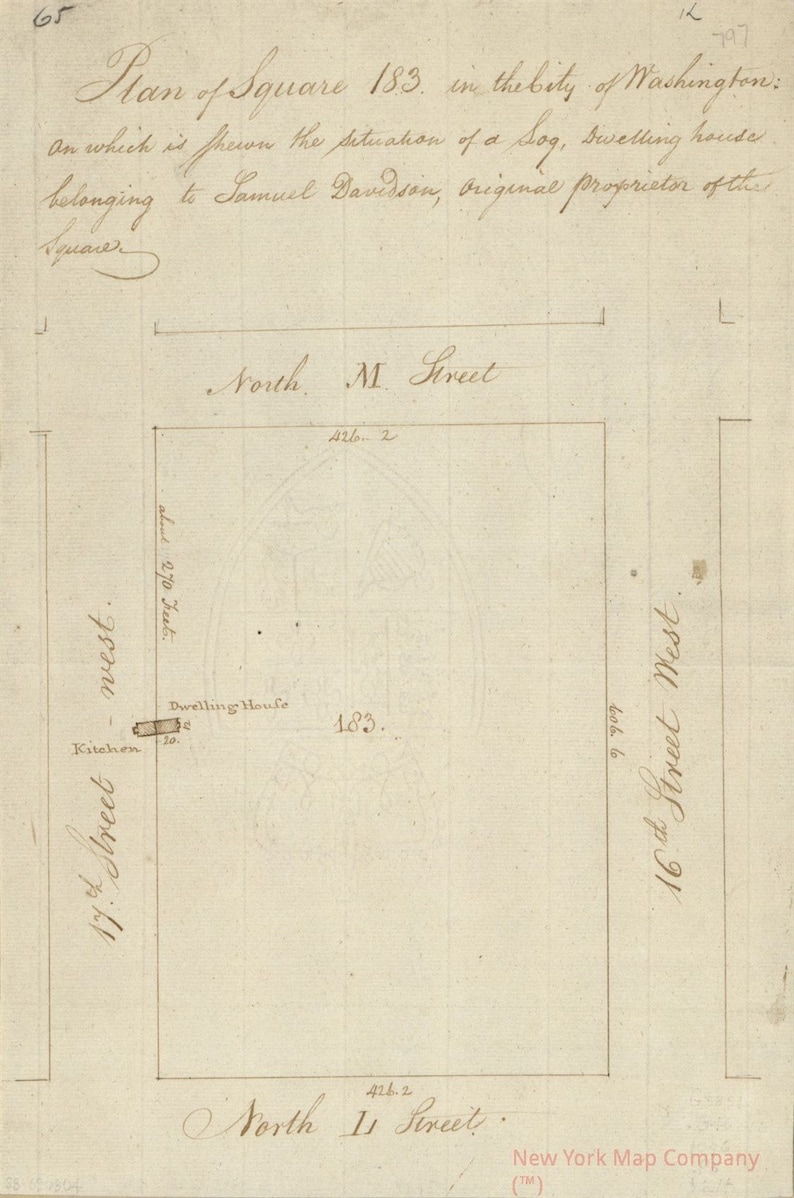 65
12
797
Plan of Square 183. in the City of Washington:
on which is shewn the situation of a Log, Dwelling house
belonging to Samuel Davidson, original proprietor of the
Square.
North. M. Street
426.. 2
about 270 Feet.
17th. Street - west.
Dwelling House
12
20.
Kitchen
183.
606. 6
16th Street West.
426.2
North L Street.
New York Map Company
(™)